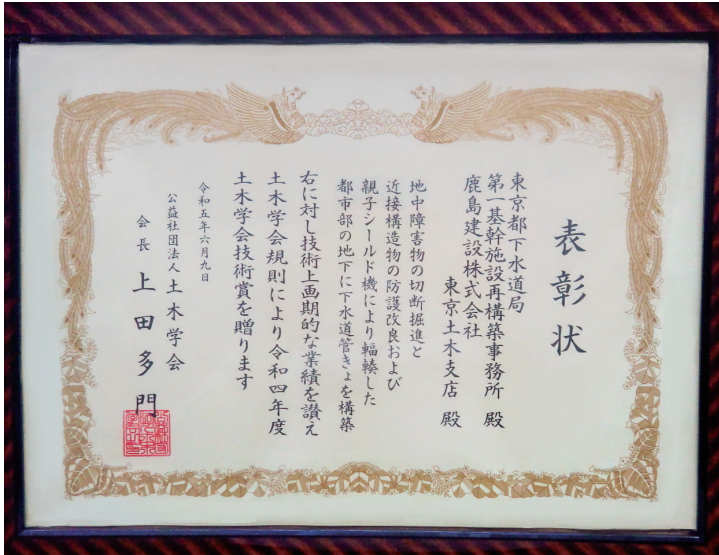 表彰状
東京都下水道局
第一基幹施設再構築事務所 殿
鹿島建設株式会社
東京土木支店 殿
地中障害物の切断掘進と
近接構造物の防護改良および
親子シールド機により輻輳した
都市部の地下に下水道管きょを構築
右に対し技術上画期的な業績を讃え
土木学会規則により令和四年度
土木学会技術賞を贈ります
令和五年六月九日
公益社団法人 土木学会
会長 上田多門